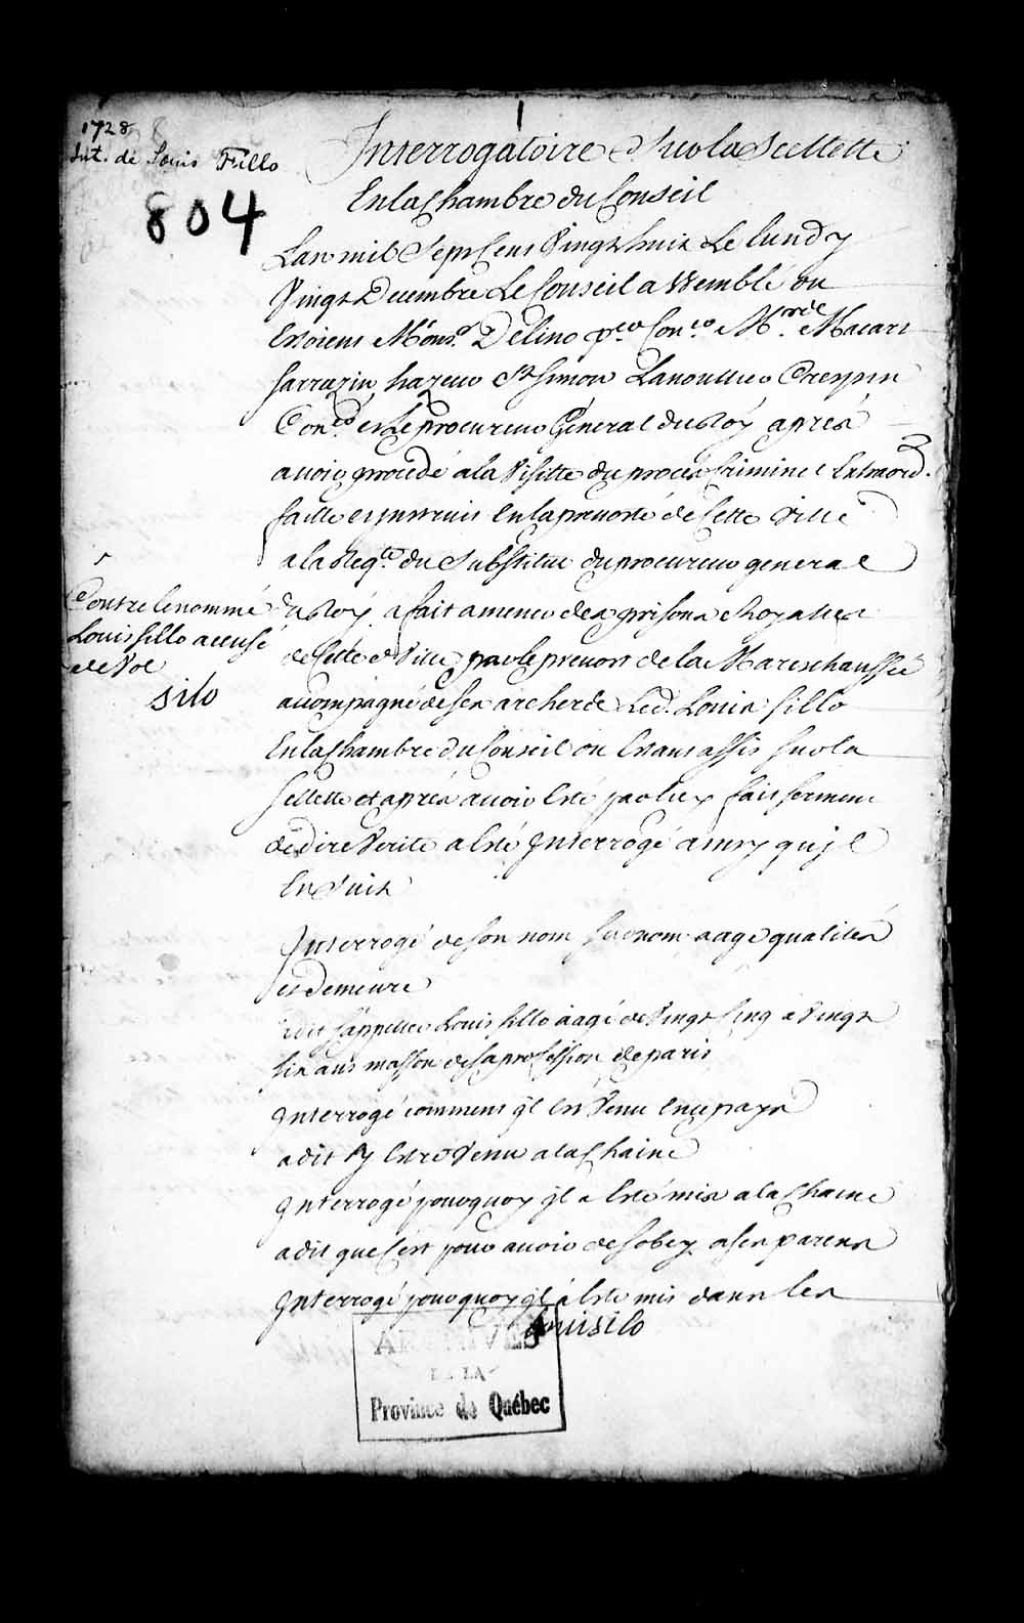 1
1728
Int. de Louis Fillo
804
Interrogatoire Sur la Scellette
En la Chambre du Conseil
Lan mil Sept Cens Vingt huit Le lundy
Vingt Decembre Le Conseil assemblé ou
Estoient Monsr. Delino pr. Coner. Mrs. de Macart
Sarrazin hazeur St Simon Lanoullier Crespin
Coners et Le procureur General du Roy aprés
avoir procedé a la Visitte du procés Criminel Extraord.
faitte et Instruit En la prevosté de Cette Ville
a la Reqte. du Substitut du procureur general
Contre le nommé
Louis fillo accusé
de Vol
silo
du Roy a fait amener des prisons Royalles
de Cette Ville par le prevost de la Mareschaussée
accompagné de ses archers Led. Louis fillo
En la Chambre du Conseil ou Estant assis Sur la
Sellette et aprés avoir Esté par luy fait serment
de dire Verité a Esté Interrogé ainsy quil
En Suit
Interrogé de son nom Surnom aage qualités
et demeure
a dit sappeller Louis fillo aagé de Vingt Cinq a Vingt
six ans masson de sa profession de paris
Interrogé comment jl est Venu en ce pays
a dit y Estre Venu a la Chaine
Interrogé pourquoy jl a Esté mis a la Chaine
a dit que C'est pour avoir desobey a ses parens
Interrogé pourquoy jl a Esté mis dans les
louisilo
ARCHIVES
DE LA
Province de Québec